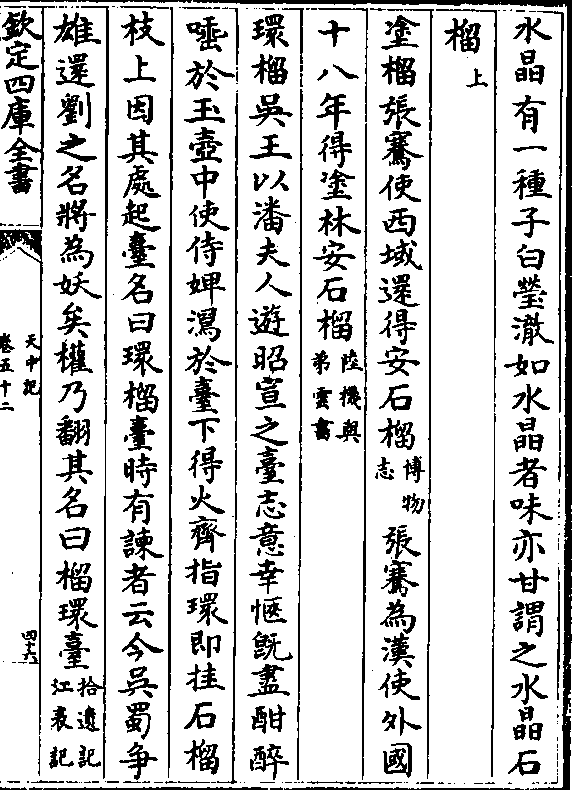 水晶有一種子白瑩澈如水晶者味亦甘謂之水晶石
榴上
塗榴張騫使西域還得安石榴博物志 張騫為漢使外國
十八年得塗林安石榴陸機與弟雲書
環榴吳王以潘夫人遊昭宣之臺志意幸愜旣盡酣醉
唾於玉壺中使侍婢瀉於臺下得火齊指環即挂石榴
枝上因其處起臺名曰環榴臺時有諫者云今吳蜀争
雄還劉之名將為妖矣權乃翻其名曰榴環臺拾遺記江表記
欽定四庫全書
天中記
卷五十二
四十六